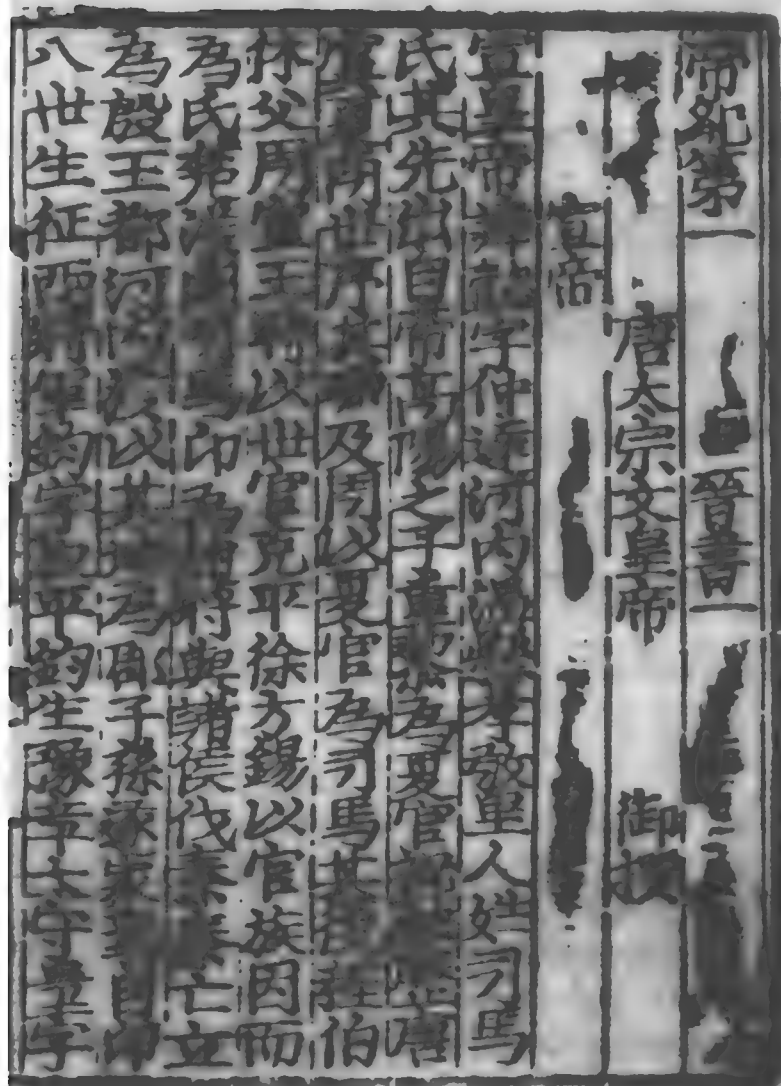 帝紀第一 晉書一
唐太宗文皇帝 御撰
宣帝
宣皇帝諱懿字仲達河內溫孝敬里人姓司馬
氏其先出自帝高陽之子重黎為夏官唐
夏商世序其職及周以夏官為司馬其程伯
休父周宣王時以世官克平徐方錫以官族因而
為氏楚漢馬卬為將與諸侯伐秦秦亡立
為殷王都河內漢以其為郡子孫遂家自卬
八世生征西將軍鈞字平鈞生豫章太守量字